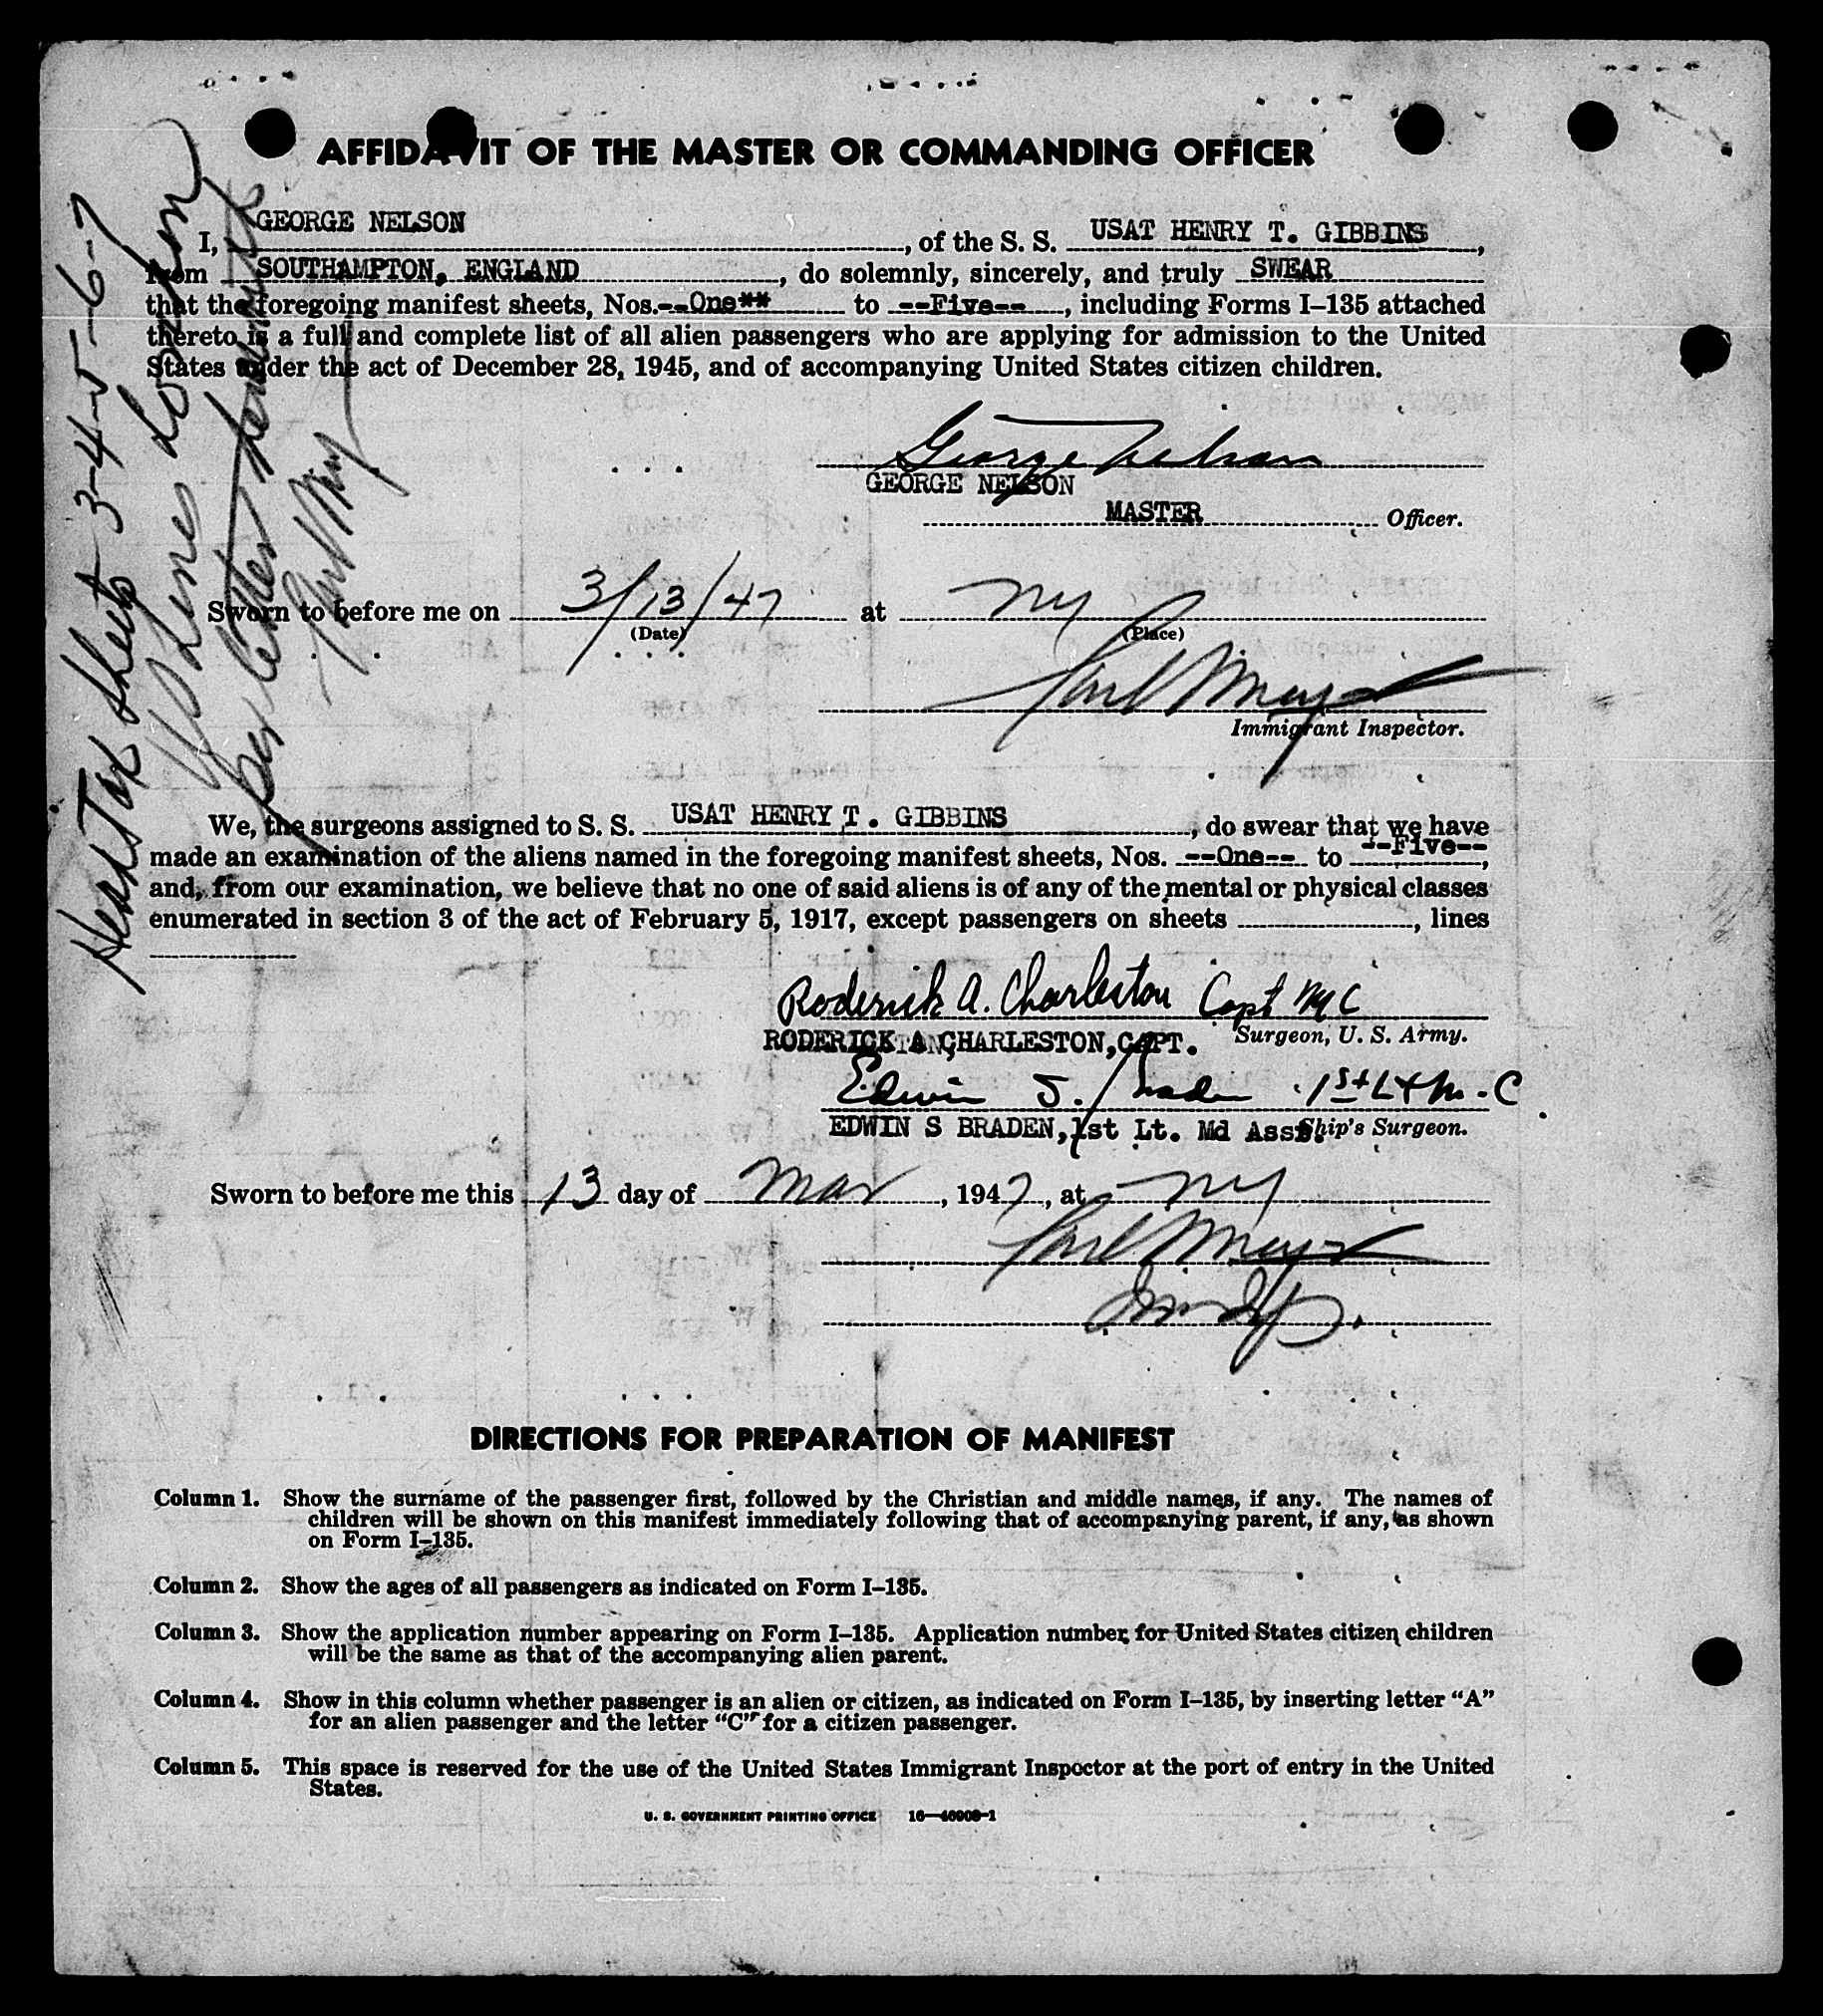 AFFIDAVIT OF THE MASTER OR COMMANDING OFFICER
I, GEORGE NELSON, of the S. S. USAT HENRY T. GIBBINS,
from SOUTHAMPTON, ENGLAND, do solemnly, sincerely, and truly SWEAR
that the foregoing manifest sheets, Nos. --One** to --Five--, including Forms I-135 attached
thereto is a full and complete list of all alien passengers who are applying for admission to the United
States under the act of December 28, 1945, and of accompanying United States citizen children.
George Nelson
GEORGE NELSON
MASTER Officer.
Sworn to before me on 3/13/47 at NY
(Date) (Place)
Immigrant Inspector.
Head Tax Sheets 3-4-5-6-7
We, the surgeons assigned to S. S. USAT HENRY T. GIBBINS, do swear that we have
made an examination of the aliens named in the foregoing manifest sheets, Nos. --One-- to --Five--,
and, from our examination, we believe that no one of said aliens is of any of the mental or physical classes
enumerated in section 3 of the act of February 5, 1917, except passengers on sheets, lines
Roderick A. Charleston Capt MC
RODERICK A CHARLESTON, CAPT. Surgeon, U. S. Army.
Edwin S. Braden 1st Lt M.C
EDWIN S BRADEN, 1st Lt. Md Asst. Ship's Surgeon.
Sworn to before me this 13 day of Mar, 1947, at NY
DIRECTIONS FOR PREPARATION OF MANIFEST
Column 1. Show the surname of the passenger first, followed by the Christian and middle names, if any. The names of
children will be shown on this manifest immediately following that of accompanying parent, if any, as shown
on Form I-135.
Column 2. Show the ages of all passengers as indicated on Form I-135.
Column 3. Show the application number appearing on Form I-135. Application number for United States citizen children
will be the same as that of the accompanying alien parent.
Column 4. Show in this column whether passenger is an alien or citizen, as indicated on Form I-135, by inserting letter "A"
for an alien passenger and the letter "C" for a citizen passenger.
Column 5. This space is reserved for the use of the United States Immigrant Inspector at the port of entry in the United
States.
U. S. GOVERNMENT PRINTING OFFICE 16-46908-1